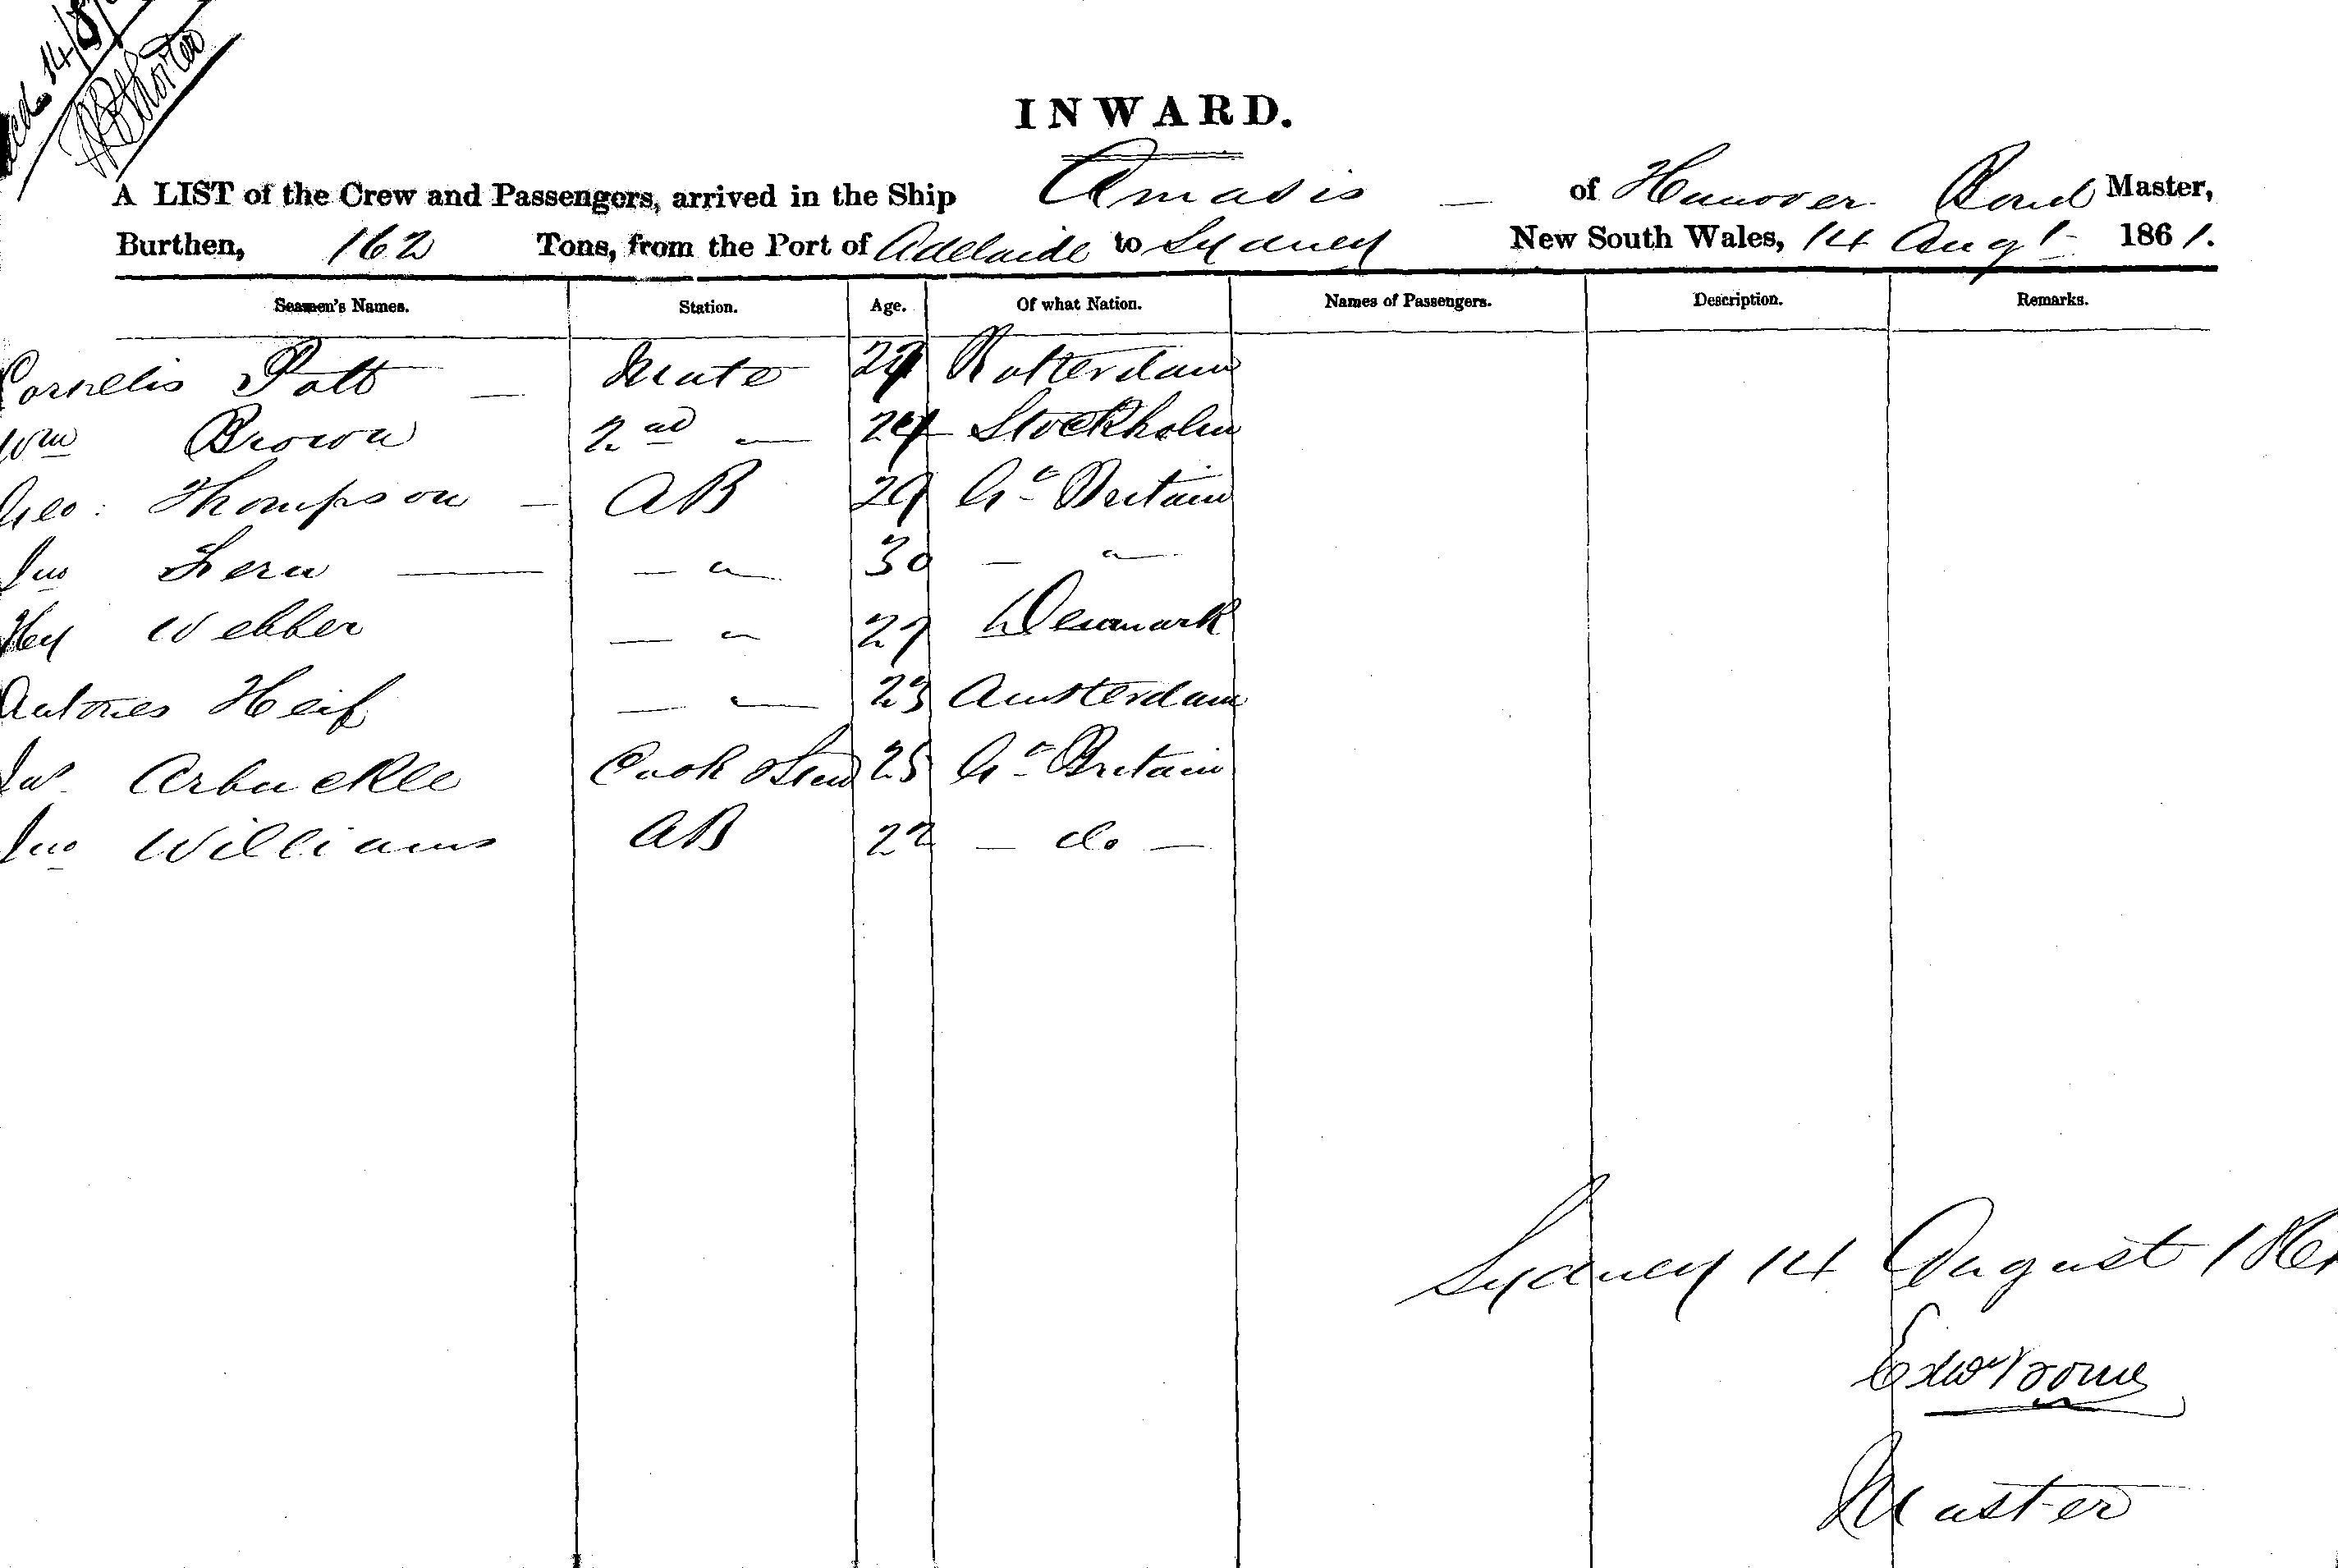 14/8/
INWARD.
A LIST of the Crew and Passengers, arrived in the Ship Amasis — of Hanover Bond Master,
Burthen, 162 Tons, from the Port of Adelaide to Sydney New South Wales, 14 Augt 1861.
Seamen's Names. Station. Age. Of what Nation. Names of Passengers. Description. Remarks.
Cornelis Patt — Mate Rotterdam
Wm Brown 2nd — 24 Stockholm
Geo: Thompson — AB 29 Gt Britain
Jno — — " 30 — "
Hy Webber — " 27 Denmark
Antones Heif — " 23 Amsterdam
Jas Arbuckle Cook & Stewd 25 Gt Britain
Jno Williams AB 22 — do —
Sydney 14 August 1861
Edw
Master